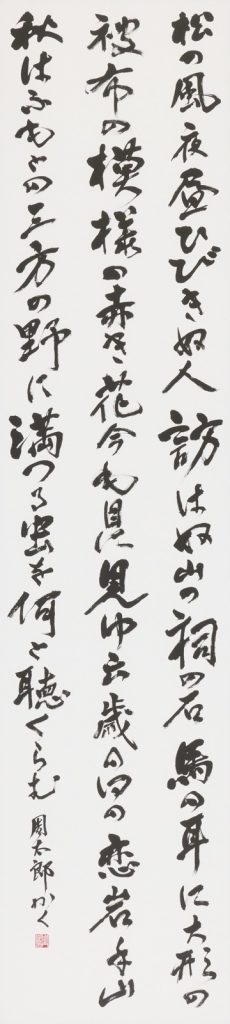 松の風夜昼ひびきぬ人訪はぬ山の祠の石馬の耳に大形の
被布の模様の赤き花今も目に見ゆ六歳の日の恋岩手山
秋はふもとの三方の野に満つる虫を何と聴くらむ
周太郎かく